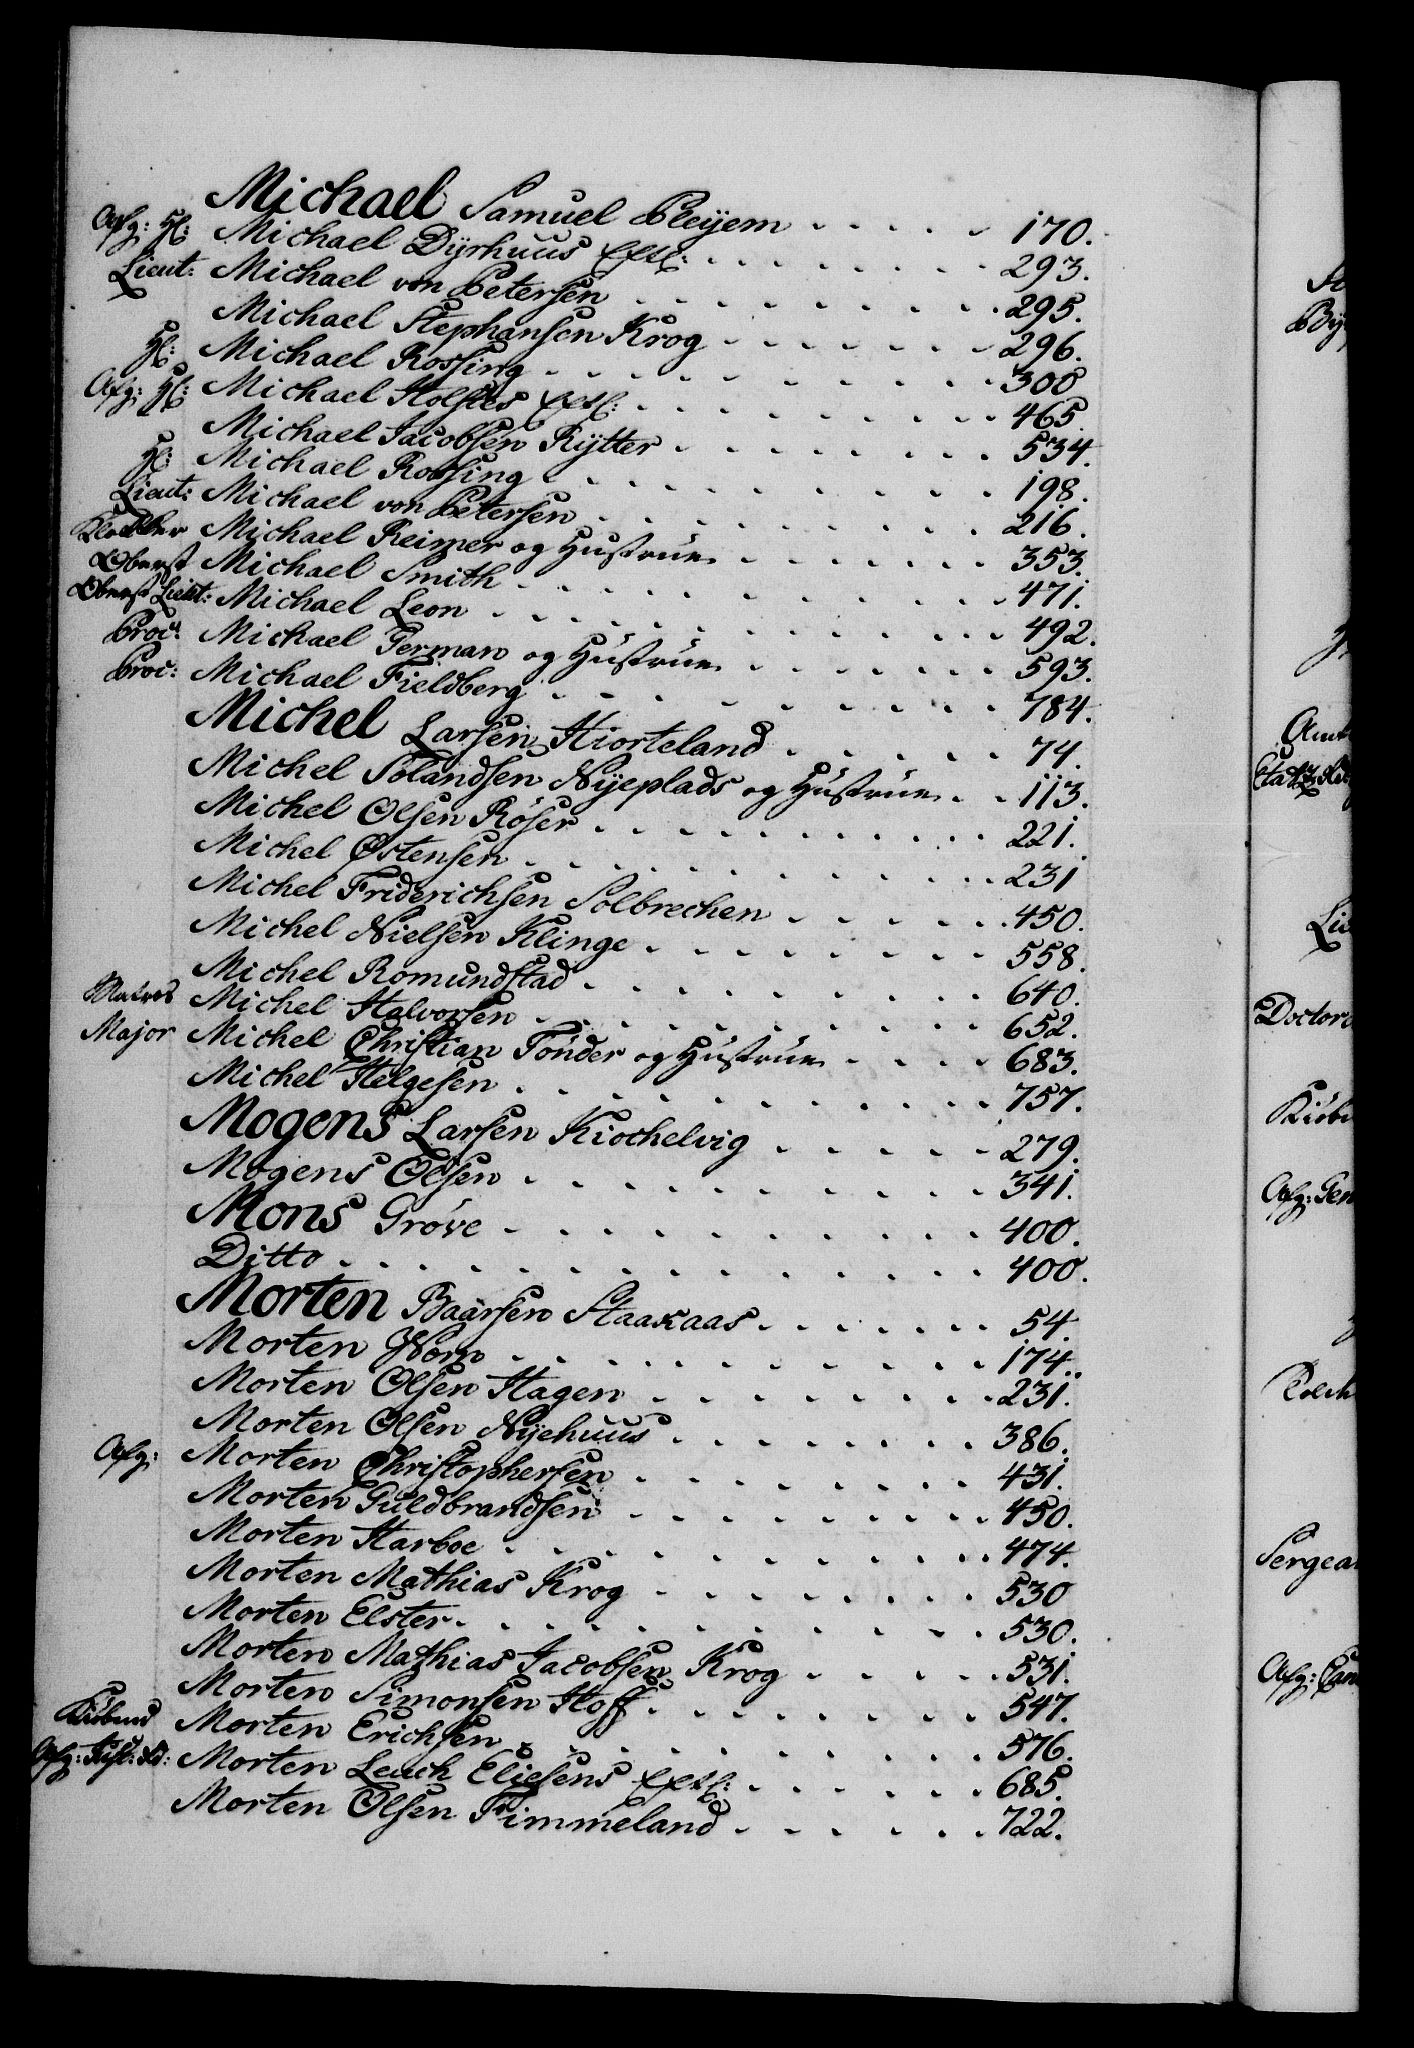 Michael Samuel Bleÿem 170.
Afg: Hl: Michael Dÿrhuus 293.
Lieut: Michael von Petersen 295.
Michael Stephansen Krog 296.
Hl: Michael Rossing 300
Afg: Hl: Michael Holstes 465.
Michael Jacobsen Rÿtter 534.
Hl: Michael Rossing 198.
Lieut: Michael von Petersen 216.
Klokker Michael Reimer og Hustrue 353.
Oberst Michael Smith 471.
Oberst Lieut: Michael Leon 492.
Proc: Michael German og Hustrue 593.
Proc: Michael Fieldberg 784.
Michel Larsen Hiorteland 74.
Michel Tolandsen Nÿeplads og Hustrue 113.
Michel Olsen Röser 221.
Michel Østensen 231
Michel Friderichsen Solbrechen 450.
Michel Nielsen Klinge 558.
Michel Romundstad 640.
Matros Michel Halvorsen 652.
Major Michel Christian Tönder og Hustrue 683.
Michel Helgesen 757.
Mogens Larsen Kiochelvig 279.
Mogens Olsen 341.
Mons Gröve 400.
Ditto 400.
Morten Baarsen Staaxaas 54.
Morten Worm 174.
Morten Olsen Hagen 231.
Morten Olsen Nÿehuus 386.
Afg: Morten Christophersen 431.
Morten Guldbrandsen 450.
Morten Harboe 474.
Morten Mathias Krog 530
Morten Elster 530.
Morten Mathias Jacobsen Krog 531.
Morten Simonsen Hoff 547.
Kiöbmd Morten Erichsen 576.
Afg: Just: Rd: Morten Leuch Eliesens 685.
Morten Olsen Fimmeland 722.
Amt
Lie
Doctor
Kiöb
Afg: Gen
Sergea
Afg: Cam